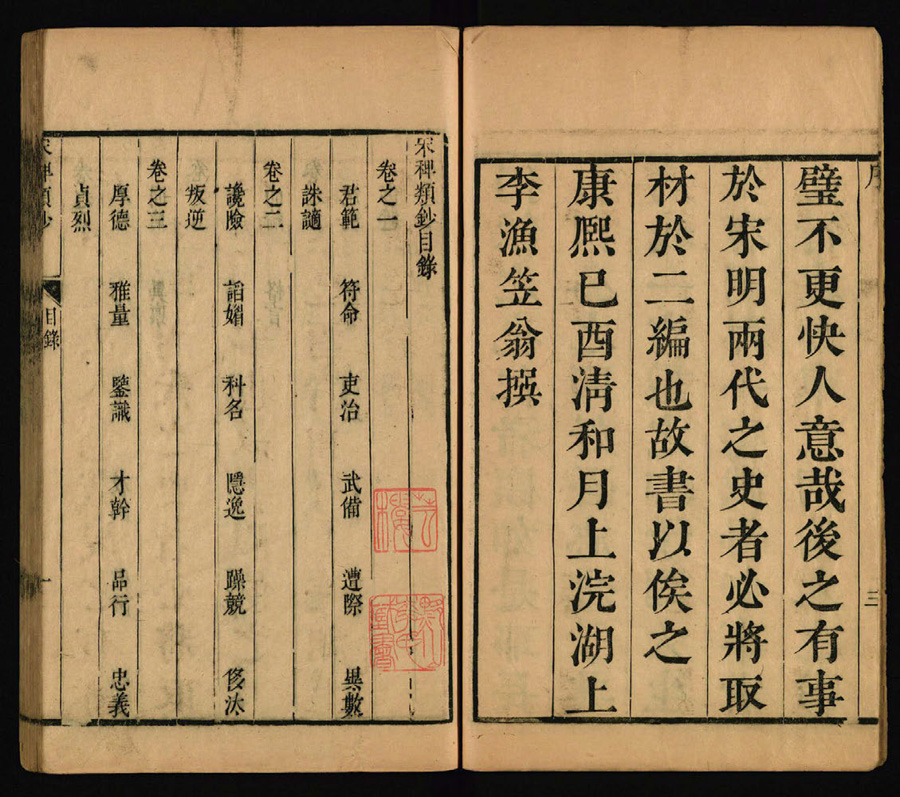 序
三
璧不更快人意哉後之有事
於宋明兩代之史者必將取
材於二編也故書以俟之
康熙己酉清和月上浣湖上
李漁笠翁撰
宋稗類鈔目錄
卷之一
君範 符命 吏治 武備 遭際 異數
誅謫
卷之二
讒險 謟媚 科名 隱逸 躁競 侈汰
叛逆
卷之三
厚德 雅量 鑒識 才幹 品行 忠義
貞烈
宋稗類鈔
目錄
一